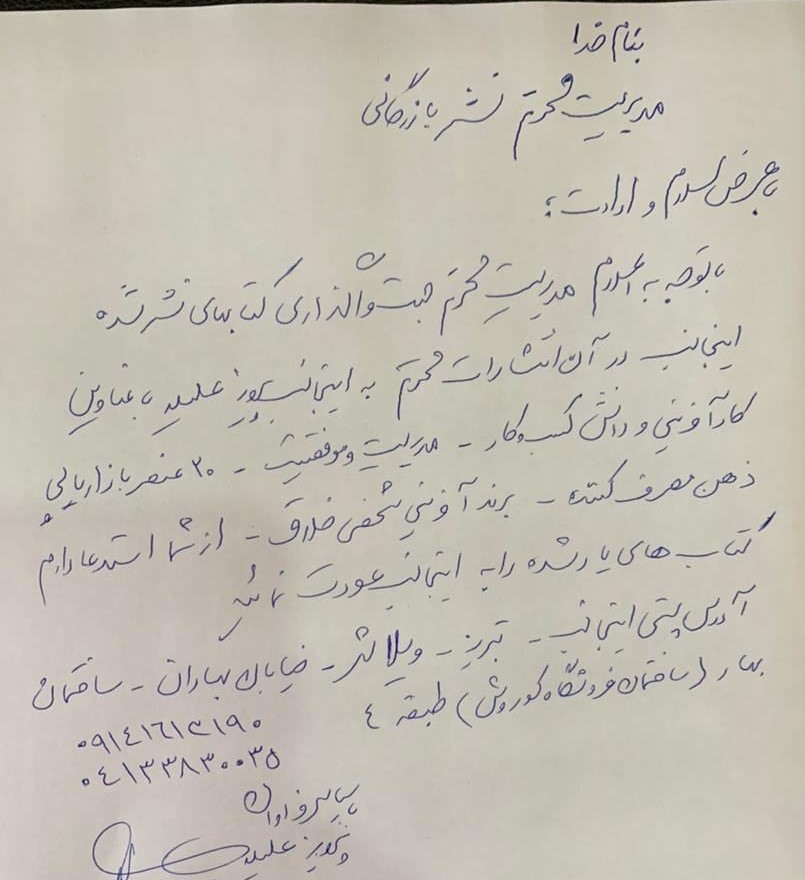 بنام خدا
مدیریت محترم نشر بازرگانی
با عرض سلام و ارادت:
با توجه به اعلام مدیریت محترم جهت واگذاری کتابهای نشر شده
اینجانب در آن انتشارات محترم به اینجانب پرویز علیپور با عناوین
کارآفرینی و دانش کسب‌وکار - مدیریت و موفقیت - ۲۰ عنصر بازاریابی و
ذهن مصرف کننده - برند آفرینی شخصی خلاق - از شما استدعا دارم
کتاب های یاد شده را به اینجانب عودت نمائید
آدرس پستی اینجانب - تبریز - ویلاشهر - خیابان بهاران - ساختمان
بهار (ساختمان فروشگاه کوروش) طبقه ٤
۰۹۱٤۱٦۱۳۱۹۰
۰٤۱۳۳۸۳۰۰۳۵
با سپاس فراوان
پرویز